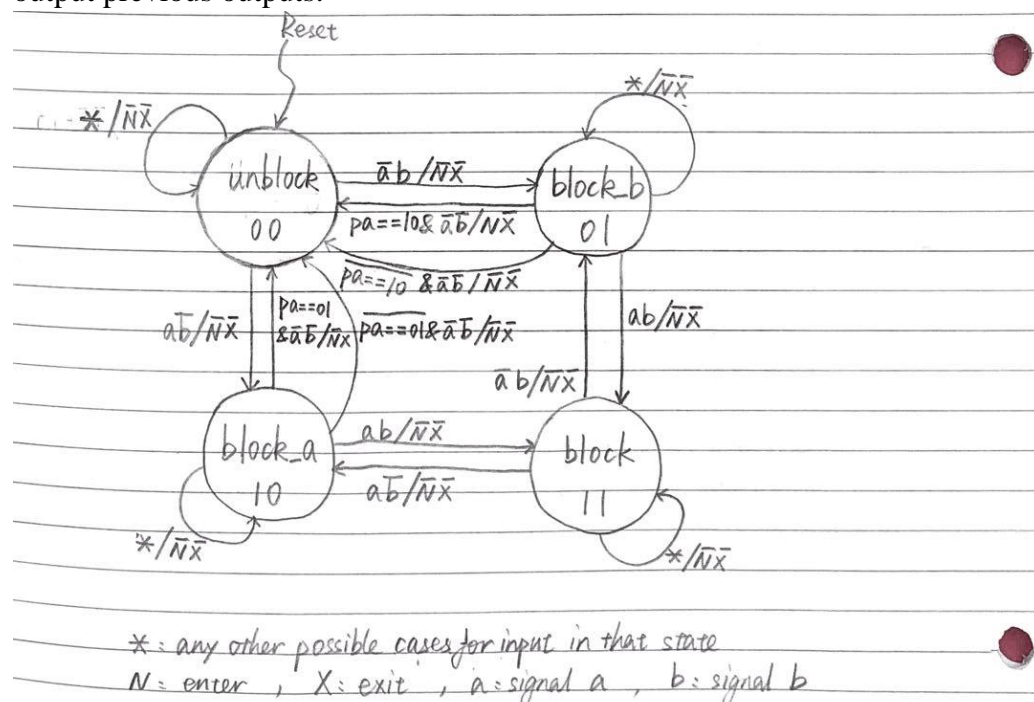 output previous outputs.
Reset
*/N̅X̅
*/N̅X̅
unblock
00
a̅b/N̅X̅
pa==10&a̅b̅/NX̅
block_b
01
p̅a̅=̅=̅1̅0̅&a̅b̅/N̅X̅
ab̅/N̅X̅
pa==01
&a̅b̅/N̅X
p̅a̅=̅=̅0̅1̅&a̅b̅/N̅X̅
ab/N̅X̅
a̅b/N̅X̅
block_a
10
ab/N̅X̅
ab̅/N̅X̅
block
11
*/N̅X̅
*/N̅X̅
*: any other possible cases for input in that state
N: enter , X: exit , a: signal a , b: signal b